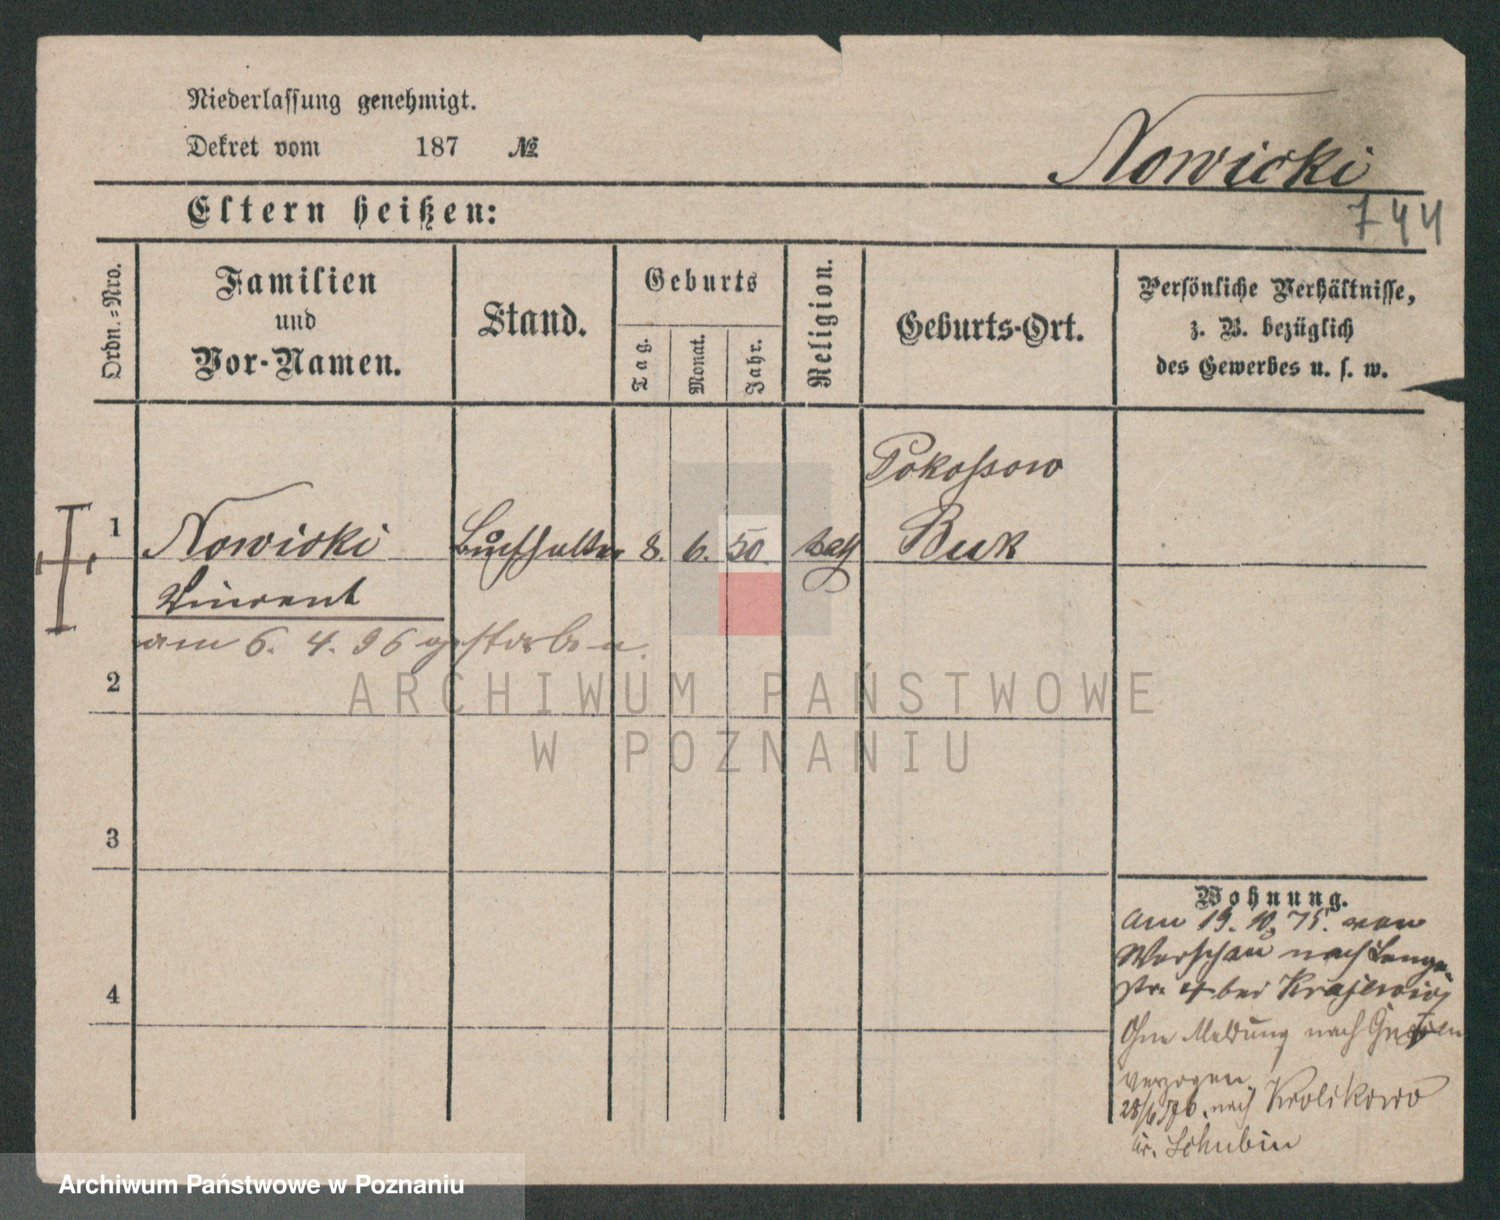 Niederlassung genehmigt.
Dekret vom 187 №
Nowicki
Eltern heißen:
744
Ordn.-Nro.
Familien
und
Vor-Namen.
Stand.
Geburts
Tag.
Monat.
Jahr.
Religion.
Geburts-Ort.
Persönliche Verhältnisse,
z. B. bezüglich
des Gewerbes u. s. w.
Pokossowo
1 Nowicki Buchhalter 8. 6. 50. kath Buk
Vincent
am 6. 4. 96 gestorben.
2
3
4
Wohnung.
Am 19. 10. 75. von
Warschau nach Lange-
str. 4 bei Krajewicz
Ohne Meldung nach Gnesen
verzogen.
28/6 76. nach Krolikowo
Kr. Schubin
ARCHIWUM PAŃSTWOWE
W POZNANIU
Archiwum Państwowe w Poznaniu